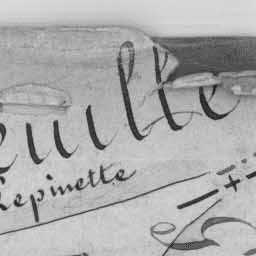 euille
Lepinette